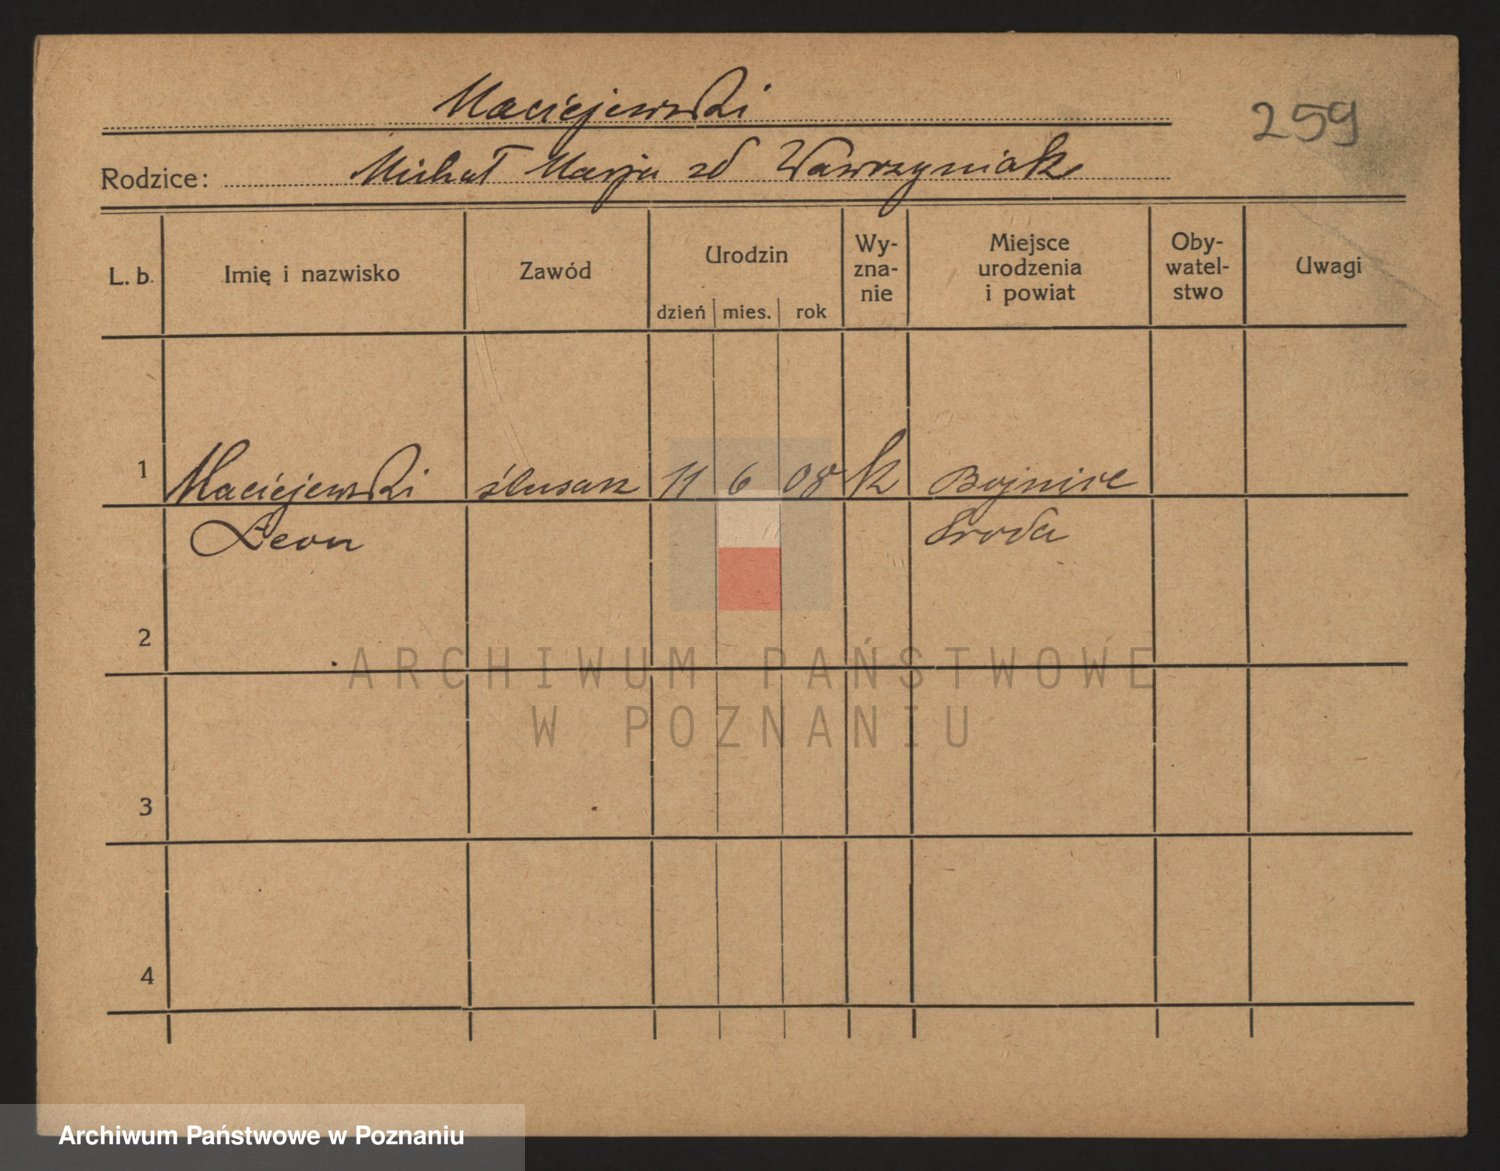 Maciejewski
259
Rodzice: Michał Marja zd Wawrzyniak
L. b.
Imię i nazwisko
Zawód
Urodzin
dzień mies. rok
Wy-
zna-
nie
Miejsce
urodzenia
i powiat
Oby-
watel-
stwo
Uwagi
1 Maciejewski ślusarz 11 6 08 k Bojnice
Leon Sroda
2
3
4
ARCHIWUM PAŃSTWOWE
W POZNANIU
Archiwum Państwowe w Poznaniu